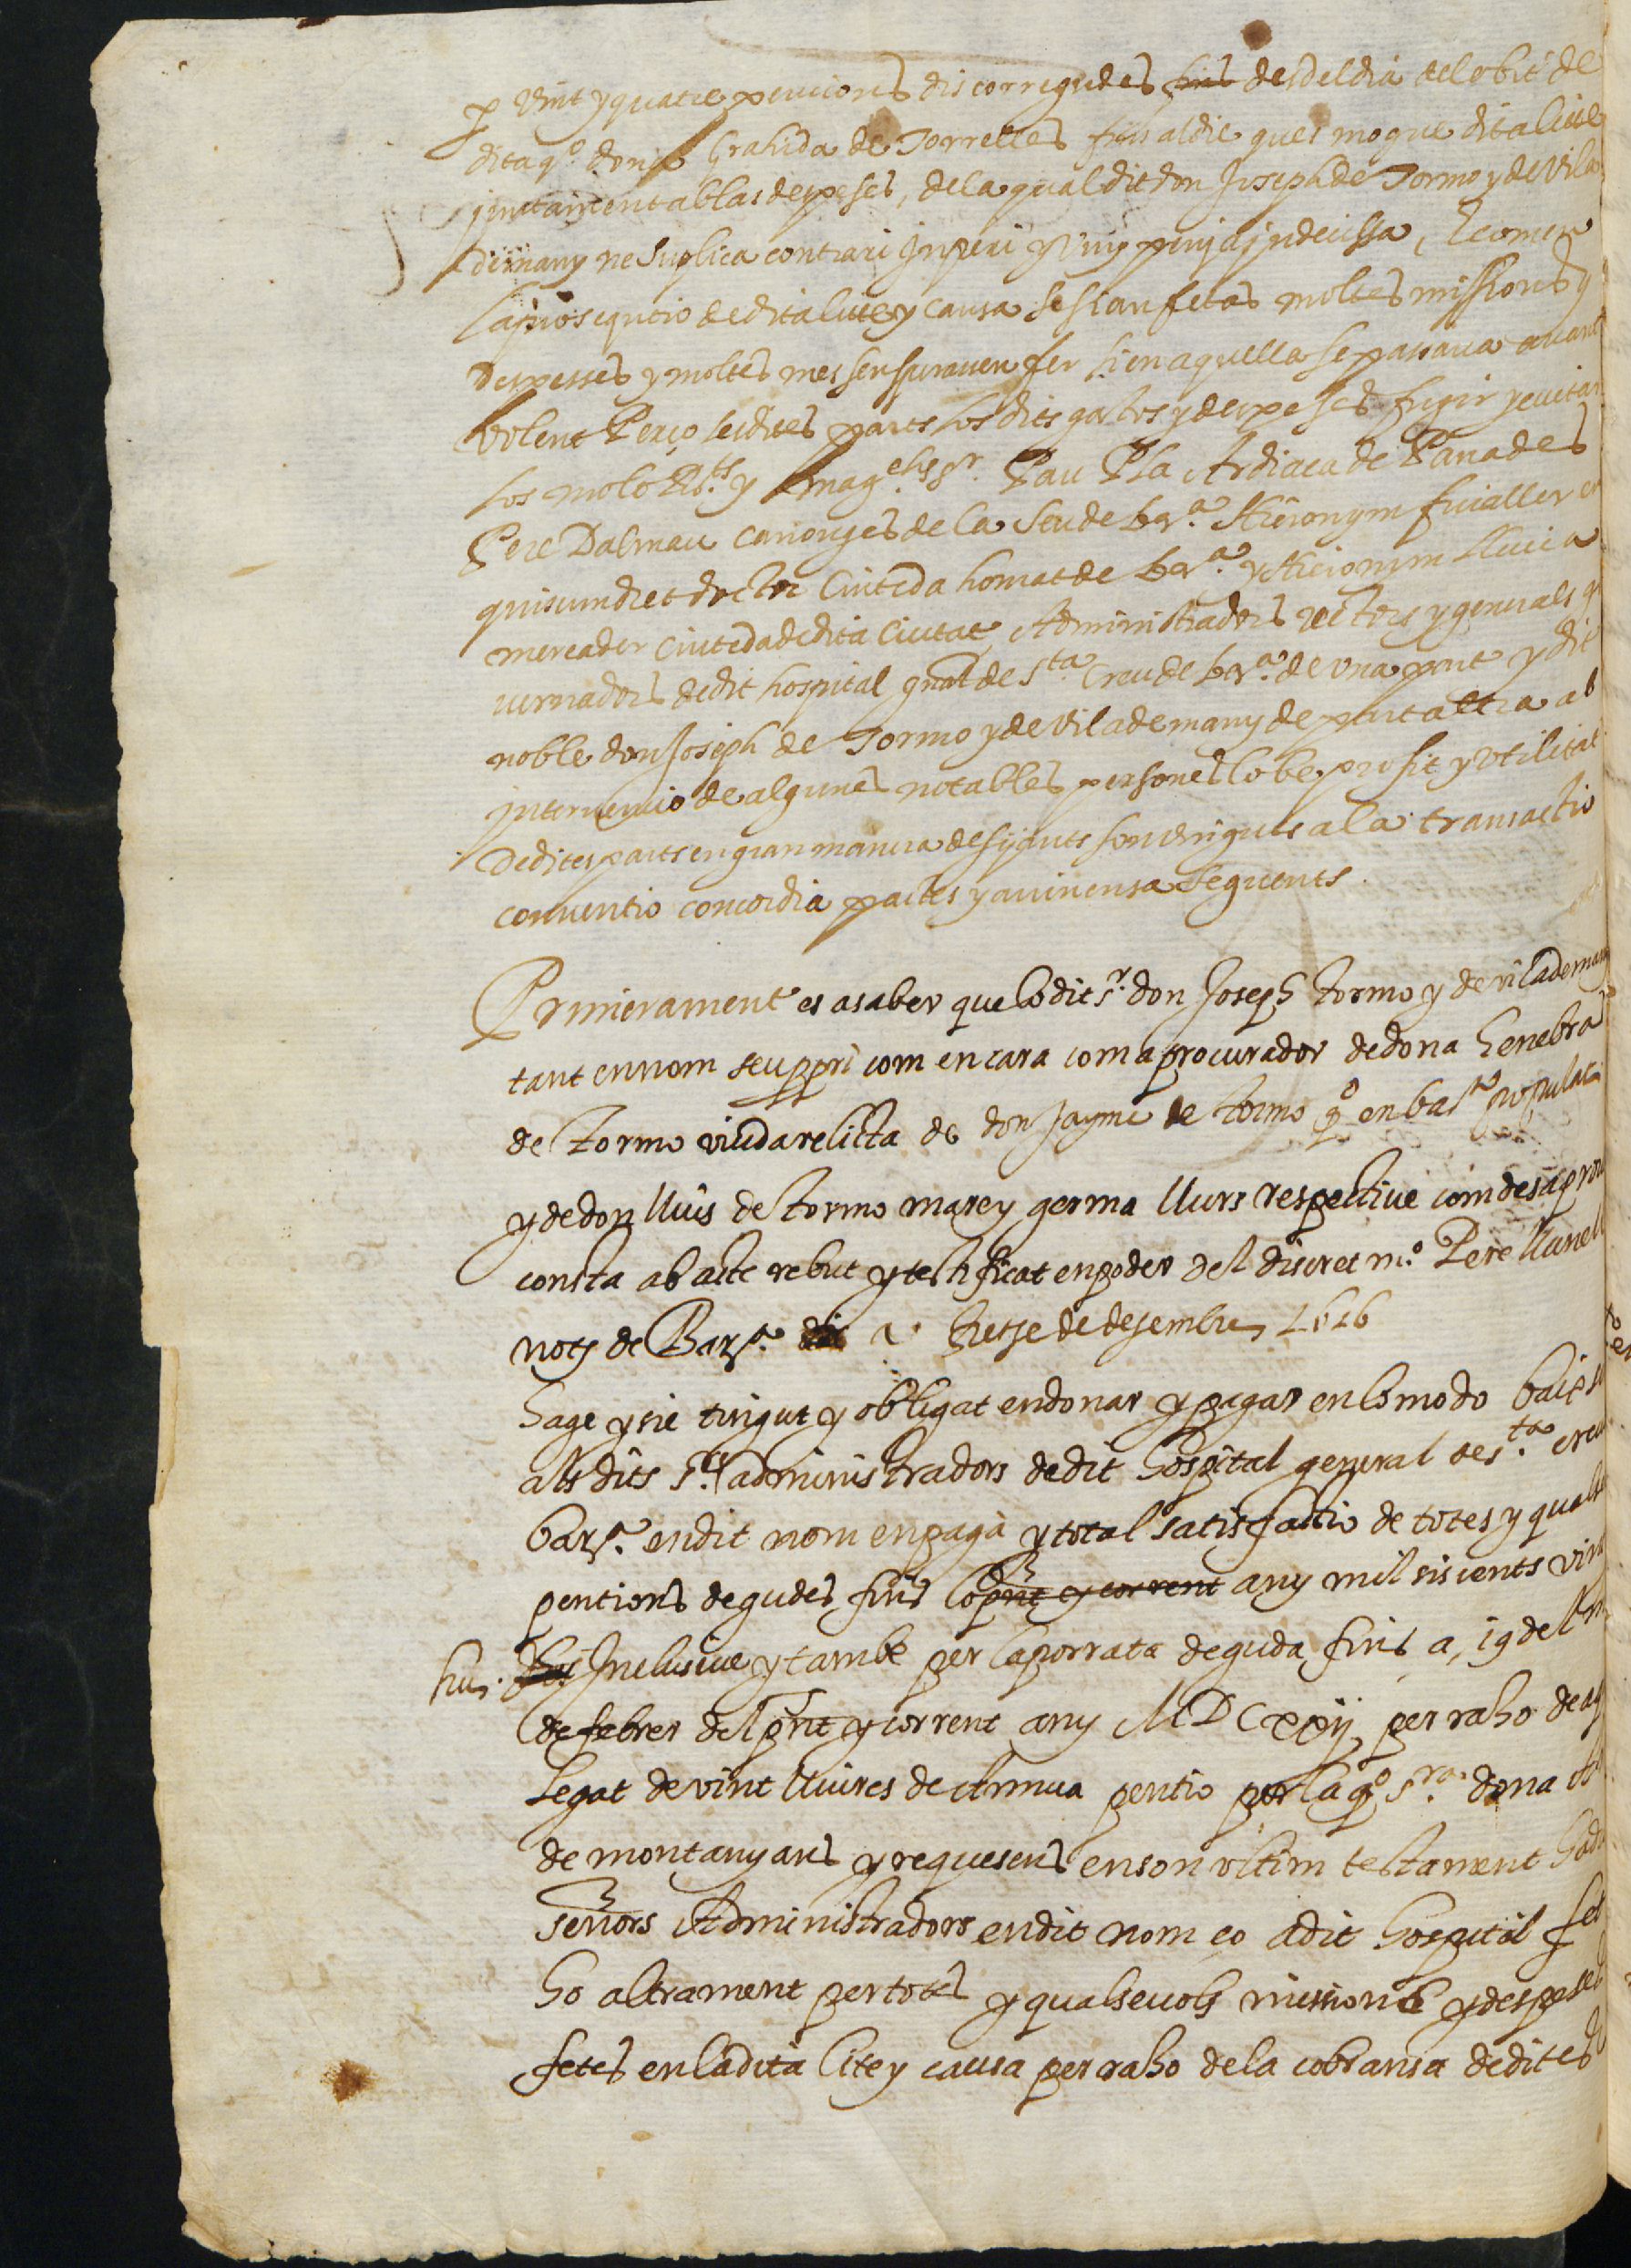 p vint y quatre pencions discorregudes fins desdel dia del obit de
dita qº. dona Grahida de Torrelles fins al die ques mogue dita lite
juntament ab las despeses, de la qual dit don Joseph de Tormo y de Vila
demany ne suplica contrari imperi y vuy penja indecissa, E com en
la prosequtio de dita lite y causa se sian fetas moltes missions y
despesses y moltes mes sen speraven fer si en aquella se passava avant
volent Perço les dites parts los dits gastos y despeses fugir y evitar
los molt Rts. y magchs Sr. Pau Pla Ardiaca de Panades
Pere Dalmau canonges de la Seu de bara. Hieronym fivaller en
quiscun dret doctor Ciuteda honrat de bara. y Hieronym Lluria
mercader Ciuteda de dita Ciutat Administradors rectors y generals go
vernadors de dit hospital gnal de Sta. Creu de bara. de una part y dit
noble don Joseph de Tormo y de Vilademany de part altra ab
intervencio de algunes notables persones lo be profit y utilitat
de dites parts en gran manera desijants son vinguts a la transactio
conventio concordia pactes y avinensa seguents.
Primerament es asaber que lo dit sr. don Joseph tormo y de vilademany
tant en nom seu ppri com encara com a procurador de dona Genebra
de tormo viuda relicta de don Jayme de tormo qº en bast populaci
y de don lluis de tormo mare y germa llurs respective com de sa procu
consta ab acte rebut y testificat en poder del discret mº. Pere llunell
noty de Barª. a tretse de desembre 1616
hage y sie tingut y obligat en donar y pagar en lo modo baix
als dits Srs administradors de dit hospital general de sta. creu
barª. en dit nom en paga y total satisfactio de totes y quals
pentions degudes fins lo pnt y corrent any mil siscents vint
hu. Inclusive y tambe per la porrata deguda fins a 19 del m
de febrer del pnt y corrent any MDCxxij per raho de aq
legat de vint lliures de Annua pentio per la qº sra. dona
de montanyans y requesens en son ultim testament
senors Administradors en dit nom eo a dit hospital fet
ho altrament per totes y qualsevols missions y despeses
fetes en la dita lite y causa per raho de la cobransa de dites